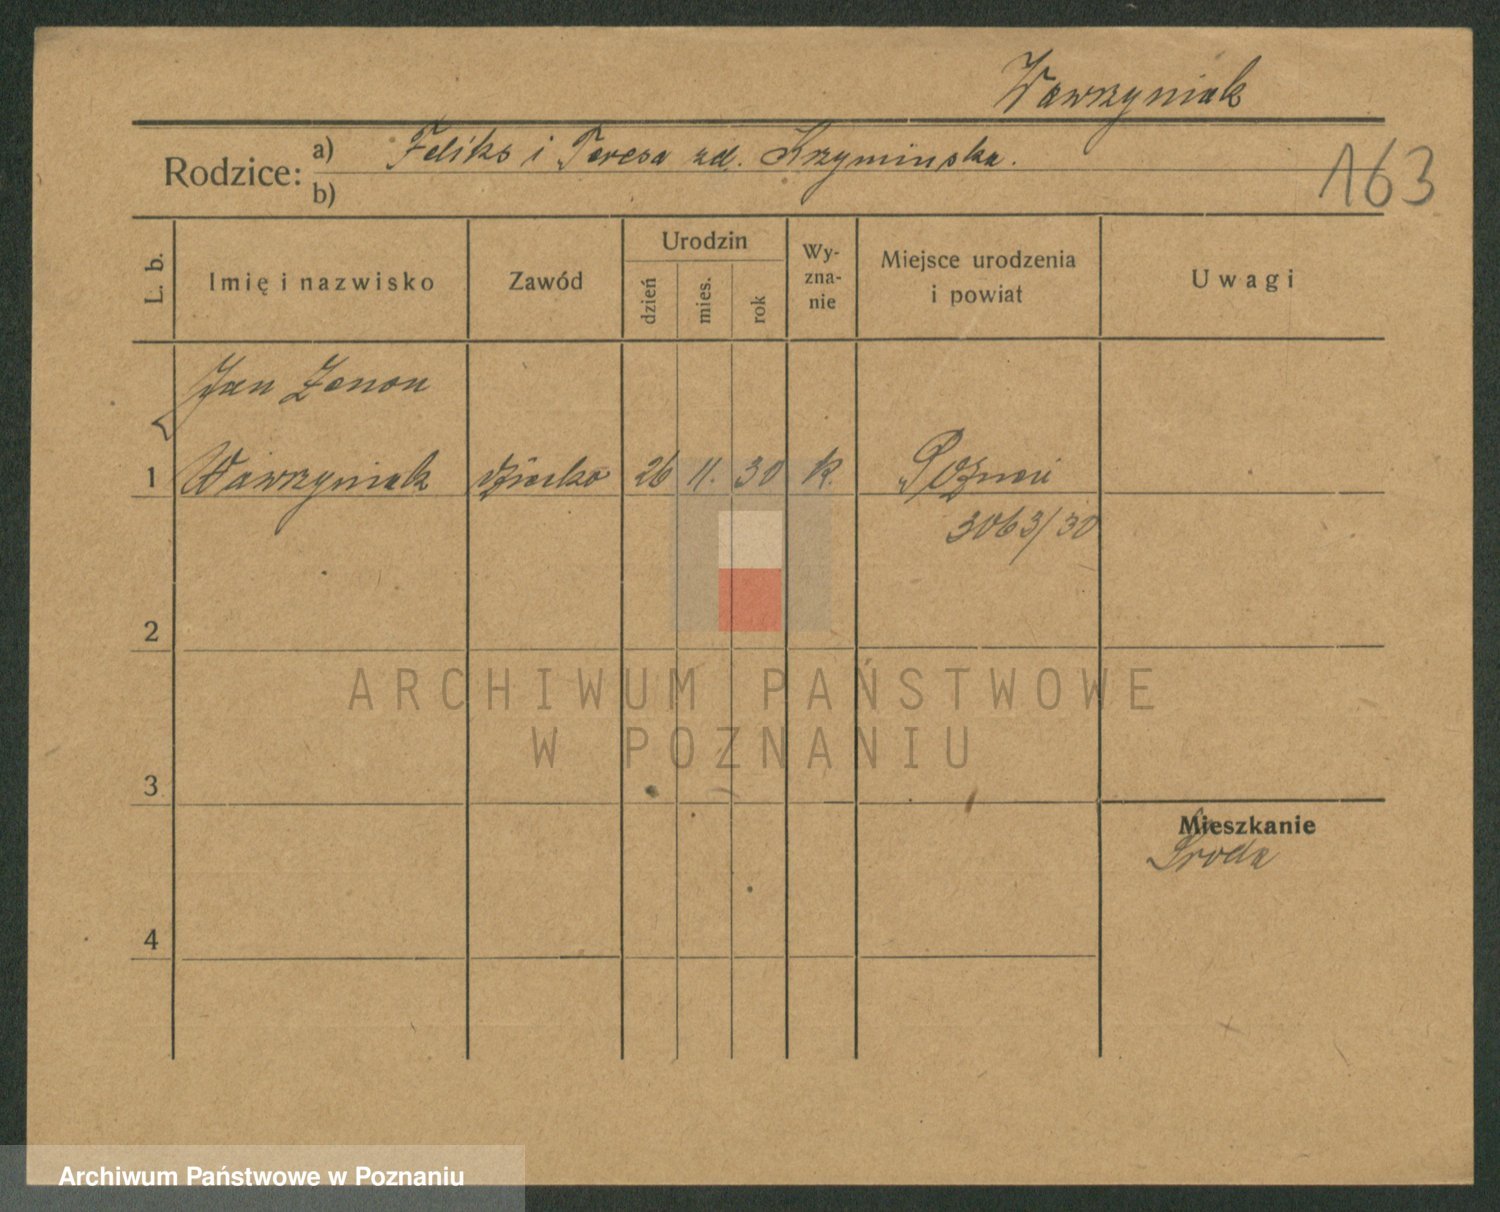 Wawrzyniak
Rodzice:
a) Feliks i Teresa zd. Krzyminska.
b)
163
L. b.
Imię i nazwisko
Zawód
Urodzin
dzień
mies.
rok
Wy-
zna-
nie
Miejsce urodzenia
i powiat
Uwagi
Jan Zenon
1 Wawrzyniak dziecko 26 11. 30 k. Poznań
3063/30
2
ARCHIWUM PAŃSTWOWE
W POZNANIU
3
Mieszkanie
Środa
4
Archiwum Państwowe w Poznaniu